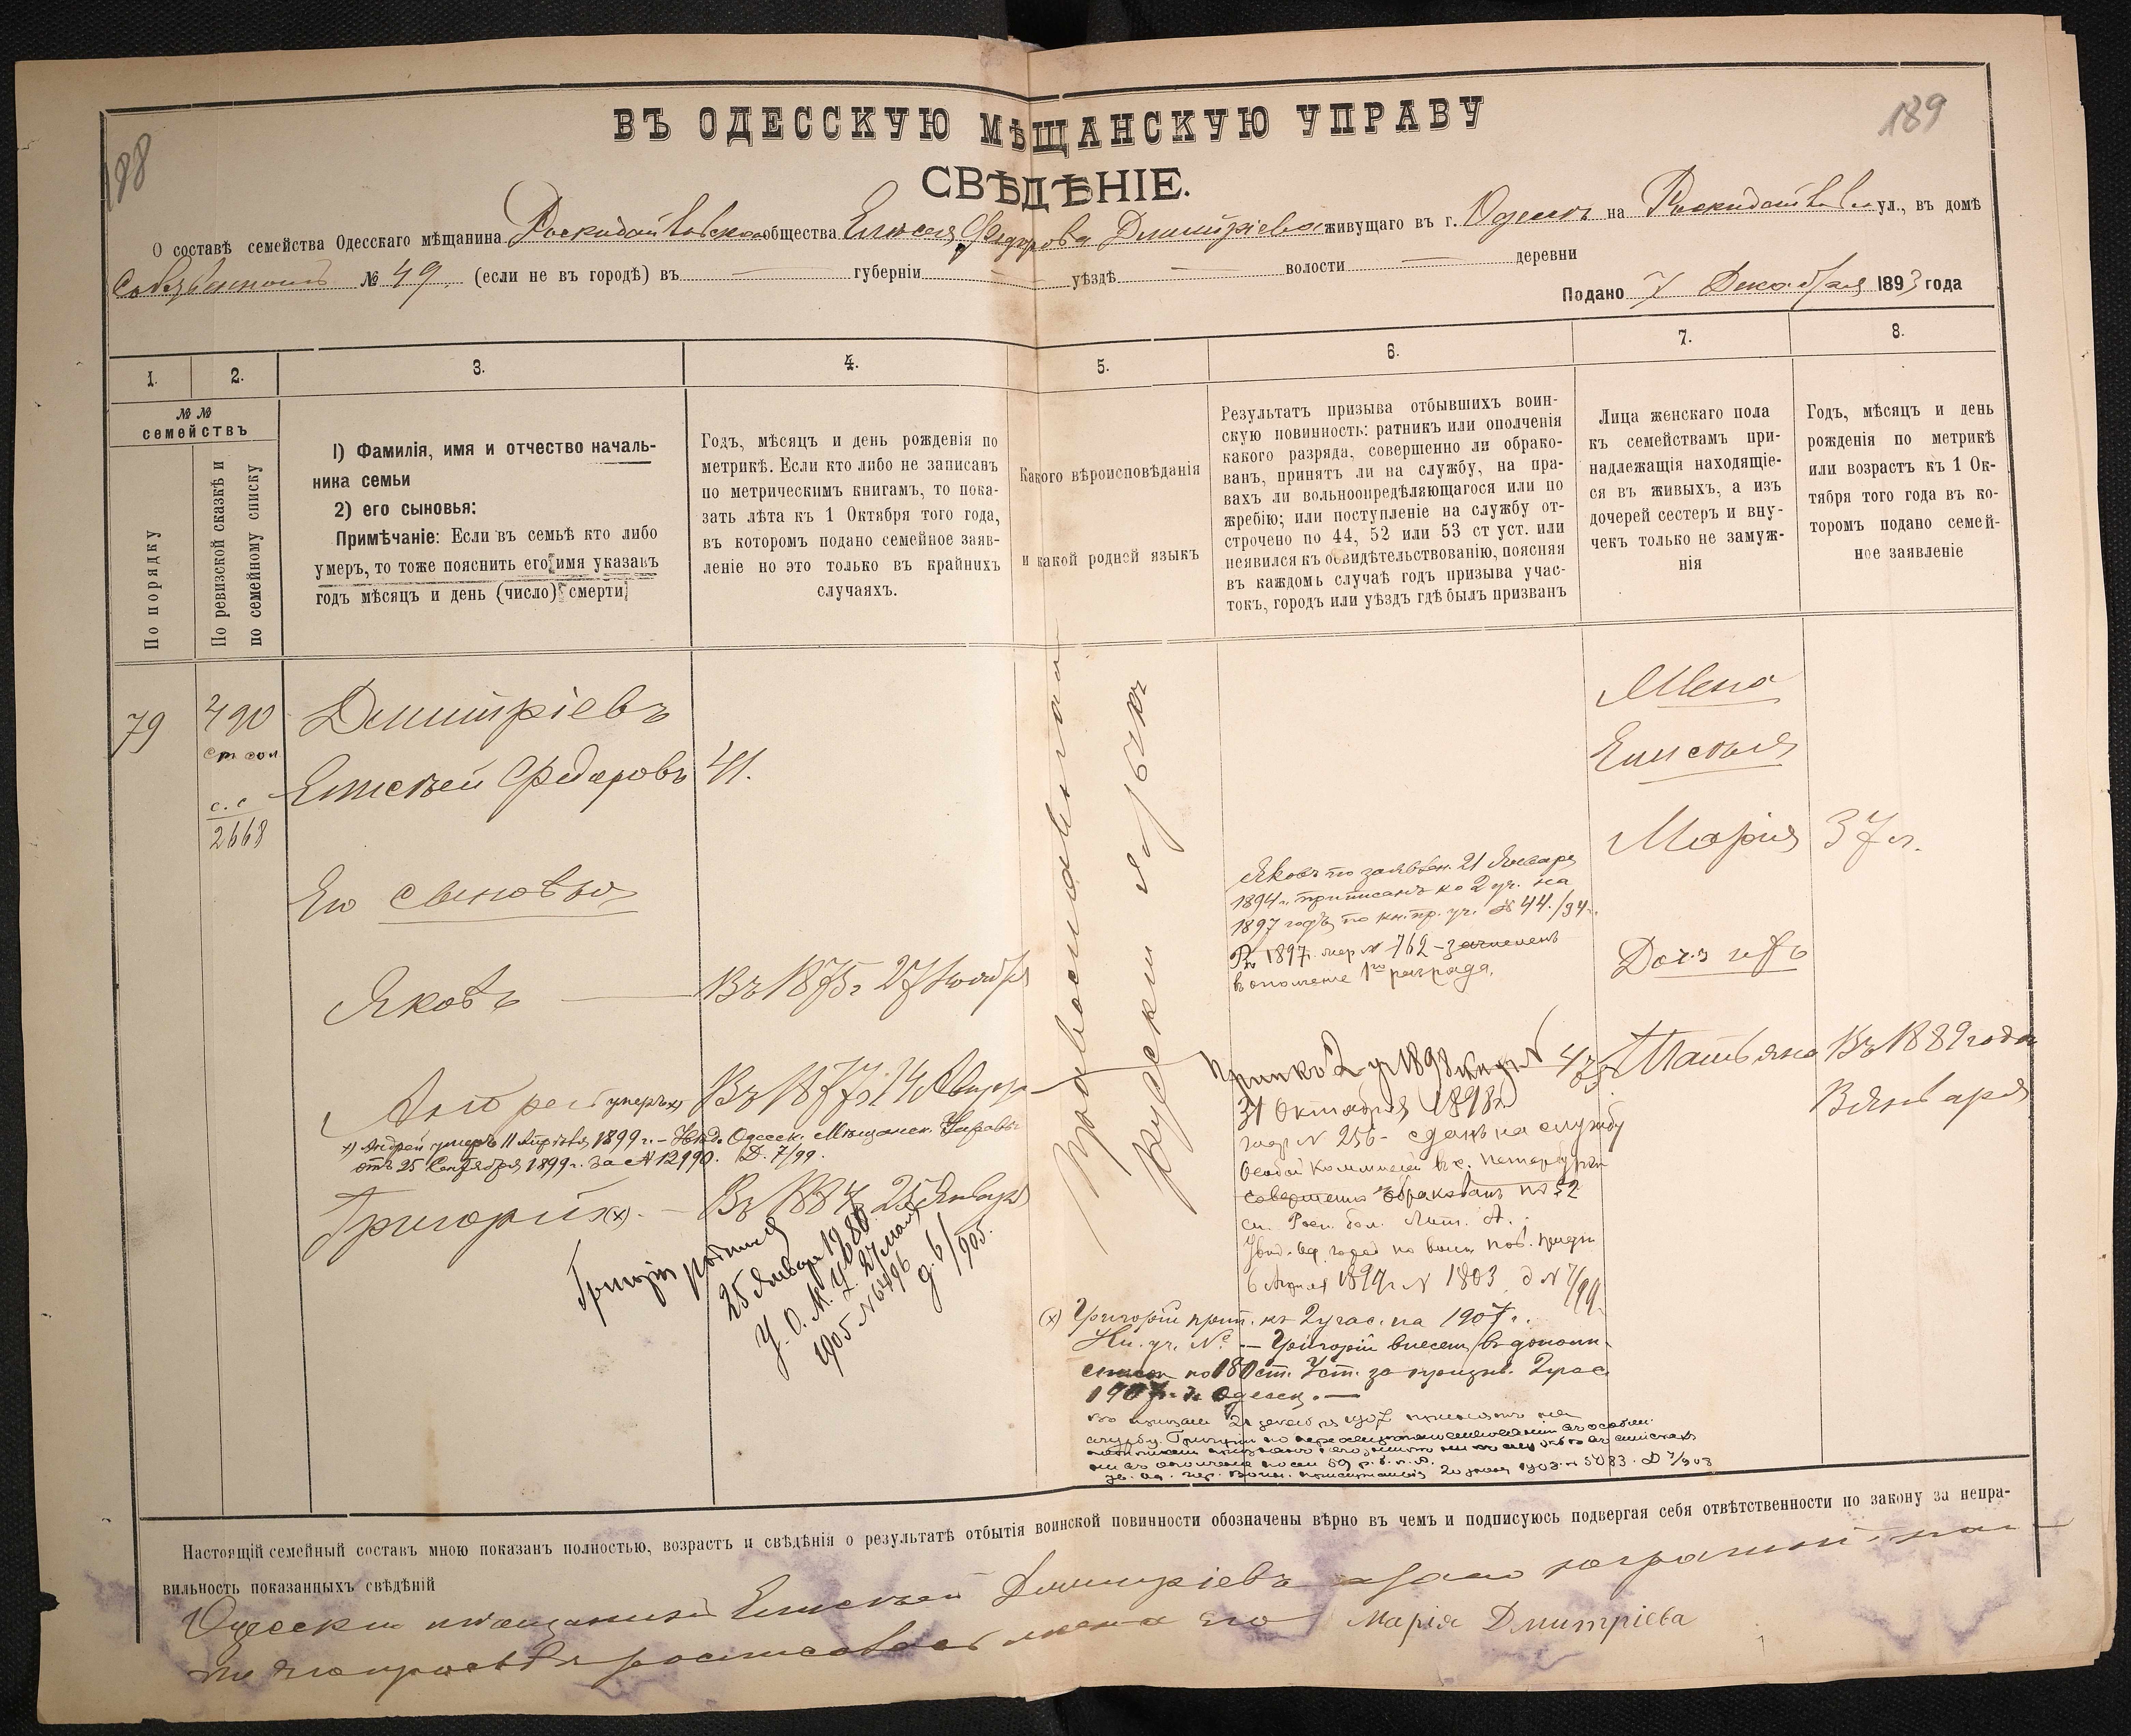 188
189
ВЪ ОДЕССКУЮ МѢЩАНСКУЮ УПРАВУ
СВѢДѢНІЕ.
О составѣ семейства Одесскаго мѣщанина общества Елисея Федорова Дмитріева живущаго въ г. Одессѣ на ул., въ домѣ
№ 49. (если не въ городѣ) въ — губерніи — уѣздѣ — волости — деревни
Подано 7 Декабря 1893 года
1.
2.
3.
4.
5.
6.
7.
8.
№ №
семействъ
По порядку
По ревизской сказкѣ и
по семейному списку
1) Фамилія, имя и отчество началь-
ника семьи
2) его сыновья:
Примѣчаніе: Если въ семьѣ кто либо
умеръ, то тоже пояснить его имя указавъ
годъ мѣсяцъ и день (число) смерти
Годъ, мѣсяцъ и день рожденія по
метрикѣ. Если кто либо не записанъ
по метрическимъ книгамъ, то пока-
зать лѣта къ 1 Октября того года,
въ которомъ подано семейное заяв-
леніе но это только въ крайнихъ
случаяхъ.
Какого вѣроисповѣданія
и какой родной языкъ
Результатъ призыва отбывшихъ воин-
скую повинность: ратникъ или ополченія
какого разряда, совершенно ли обрако-
ванъ, принятъ ли на службу, на пра-
вахъ ли вольноопредѣляющагося или по
жребію; или поступленіе на службу от-
строчено по 44, 52 или 53 ст уст. или
неявился къ освидѣтельствованію, поясняя
въ каждомъ случаѣ годъ призыва учас-
токъ, городъ или уѣздъ гдѣ былъ призванъ
Лица женскаго пола
къ семействамъ при-
надлежащія находящіе-
ся въ живыхъ, а изъ
дочерей сестеръ и вну-
чекъ только не замуж-
нія
Годъ, мѣсяцъ и день
рожденія по метрикѣ
или возрастъ къ 1 Ок-
тября того года въ ко-
торомъ подано семей-
ное заявленіе
79
490
с. с
2668
Дмитріевъ
Елисѣей Федоровъ 41.
Его сыновья
Яковъ — Въ 1875 г 27 Ноября
Андрей умеръ x) Въ 1877 г. 14 Августа
x) Андрей умеръ 11 Апрѣля 1899 г. — Увѣд. Одесск. Мѣщанск. Управы
отъ 25 Сентября 1899 г. за № 12990. Д. 7/99.
Григорій (x). — Въ 1887 25 Января
Григорій родился
25 Января 1886
У. О. М. У. 27 мая
1905 № 6496
д. 6/905.
Православнаго
русскій языкъ
Яковъ по заявлен. 21 Января
1894 г. приписанъ ко 2 уч. на
1897 годъ по кн. пр. уч. № 44./94 г.
Въ 1897 г. жер № 762 — зачисленъ
в ополчение 1го разряда.
31 Октября 1898 г
жер № 256 — сданъ на службу
Особой Коммисіей въ с. Петербургѣ
совершенно обракованъ по 52
ст. Росп. бол. Лит. А.
1899 г № 1803 д № 7/99.
(x) Григорій прип. къ 2 учас. на 1907 г.
Кн. уч. № — Григорій внесен в дополн.
список по 180 ст. Уст. за призыв. 2 учас
1907 г. г. Одессы. —
Жена
Елисѣя
Марія 37 л.
Дочь ихъ
Татьяна Въ 1889 года
Января
Настоящій семейный составъ мною показанъ полностью, возрастъ и свѣдѣнія о результатѣ отбытія воинской повинности обозначены вѣрно въ чемъ и подписуюсь подвергая себя отвѣтственности по закону за непра-
вильность показанныхъ свѣдѣній
Одесскій мѣщанинъ Елисѣей Дмитріевъ
жена его Марія Дмитріева